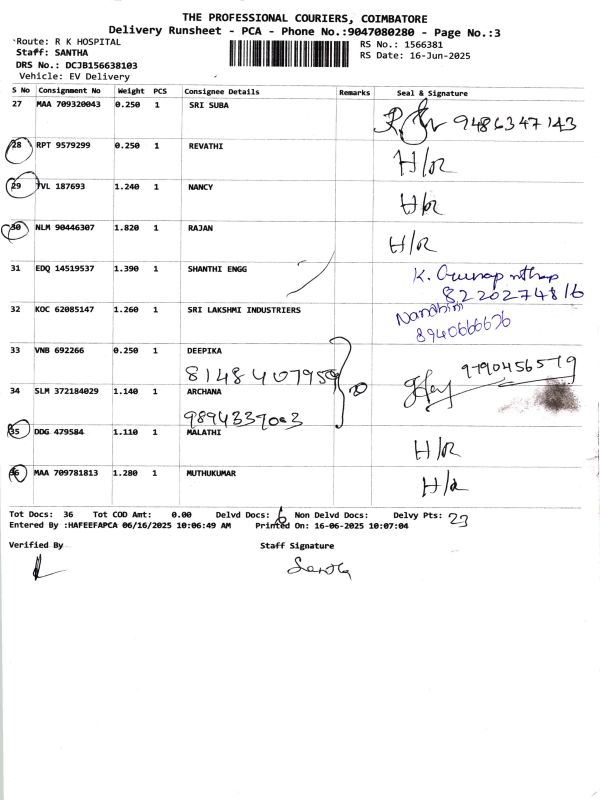 THE PROFESSIONAL COURIERS, COIMBATORE
Delivery Runsheet - PCA - Phone No.:9047080280 - Page No.:3
Route: R K HOSPITAL
RS No.: 1566381
Staff: SANTHA
RS Date: 16-Jun-2025
DRS No.: DCJB156638103
Vehicle: EV Delivery
S No Consignment No Weight PCS Consignee Details Remarks Seal & Signature
27 MAA 709320043 0.250 1 SRI SUBA 9486347143
28 RPT 9579299 0.250 1 REVATHI H/R
29 TVL 187693 1.240 1 NANCY H/R
30 NLM 90446307 1.820 1 RAJAN H/R
31 EDQ 14519537 1.390 1 SHANTHI ENGG
8220274816
32 KOC 62085147 1.260 1 SRI LAKSHMI INDUSTRIERS Nandhini
8940666676
33 VNB 692266 0.250 1 DEEPIKA
8148407959 9790456579
34 SLM 372184029 1.140 1 ARCHANA
9894337003
35 DDG 479584 1.110 1 MALATHI H/R
36 MAA 709781813 1.280 1 MUTHUKUMAR H/R
Tot Docs: 36 Tot COD Amt: 0.00 Delvd Docs: 6 Non Delvd Docs: Delvy Pts: 23
Entered By :HAFEEFAPCA 06/16/2025 10:06:49 AM Printed On: 16-06-2025 10:07:04
Verified By Staff Signature
Santha